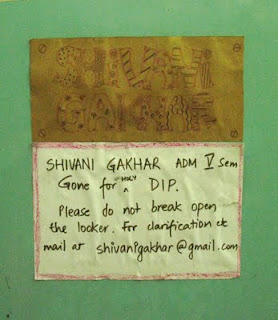 SHIVANI
GAKHAR
SHIVANI GAKHAR ADM V Sem
Gone for HOLY DIP.
Please do not break open
the locker. For clarification etc
mail at shivanigakhar@gmail.com